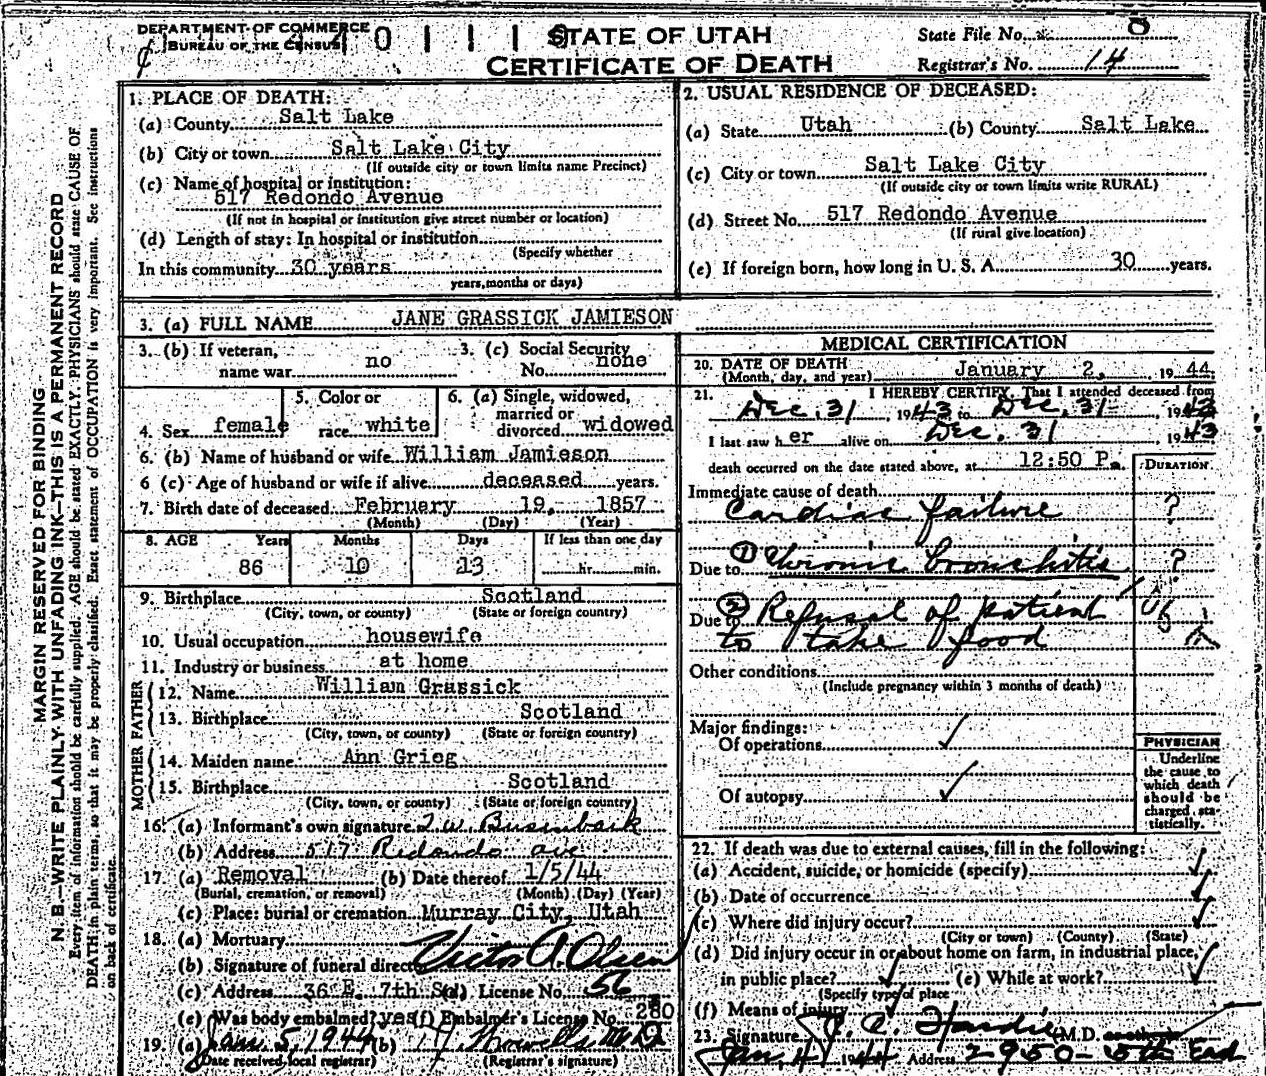 DEPARTMENT OF COMMERCE
BUREAU OF THE CENSUS
STATE OF UTAH
CERTIFICATE OF DEATH
State File No. 8
Registrar's No. 14
MARGIN RESERVED FOR BINDING
N. B.—WRITE PLAINLY WITH UNFADING INK—THIS IS A PERMANENT RECORD
Every item of information should be carefully supplied. AGE should be stated EXACTLY. PHYSICIANS should state CAUSE OF
DEATH in plain terms, so that it may be properly classified. Exact statement of OCCUPATION is very important. See instructions
on back of certificate.
1. PLACE OF DEATH:
(a) County Salt Lake
(b) City or town Salt Lake City
(If outside city or town limits name Precinct)
(c) Name of hospital or institution:
517 Redondo Avenue
(If not in hospital or institution give street number or location)
(d) Length of stay: In hospital or institution
(Specify whether
In this community 30 years
years, months or days)
2. USUAL RESIDENCE OF DECEASED:
(a) State Utah (b) County Salt Lake
(c) City or town Salt Lake City
(If outside city or town limits write RURAL)
(d) Street No. 517 Redondo Avenue
(If rural give location)
(e) If foreign born, how long in U. S. A. 30 years.
3. (a) FULL NAME JANE GRASSICK JAMIESON
3. (b) If veteran, name war no
3. (c) Social Security No. none
4. Sex female
5. Color or race white
6. (a) Single, widowed, married or divorced widowed
6. (b) Name of husband or wife William Jamieson
6 (c) Age of husband or wife if alive deceased years.
7. Birth date of deceased February 19, 1857
(Month) (Day) (Year)
8. AGE Years Months Days If less than one day
86 10 13 hr. min.
9. Birthplace Scotland
(City, town, or county) (State or foreign country)
10. Usual occupation housewife
11. Industry or business at home
FATHER
12. Name William Grassick
13. Birthplace Scotland
(City, town, or county) (State or foreign country)
MOTHER
14. Maiden name Ann Grieg
15. Birthplace Scotland
(City, town, or county) (State or foreign country)
16. (a) Informant's own signature J. W. Busenbark
(b) Address 517 Redondo ave
17. (a) Removal (b) Date thereof 1/5/44
(Burial, cremation, or removal) (Month) (Day) (Year)
(c) Place: burial or cremation Murray City, Utah
18. (a) Mortuary
(b) Signature of funeral director Victor A. Olsen
(c) Address 36 E. 7th So. (d) License No. 56
(e) Was body embalmed? yes (f) Embalmer's License No. 280
19. (a) Jan. 5, 1944 (b) Howells M D
(Date received local registrar) (Registrar's signature)
MEDICAL CERTIFICATION
20. DATE OF DEATH
(Month, day, and year) January 2, 1944
21. I HEREBY CERTIFY, That I attended deceased from
Dec. 31 1943 to Dec. 31 1943
I last saw her alive on Dec. 31 1943
death occurred on the date stated above, at 12:50 P.m.
DURATION
Immediate cause of death
Cardiac failure ?
Due to (1) Chronic bronchitis ?
Due to (2) Refusal of patient
to take food
Other conditions
(Include pregnancy within 3 months of death)
Major findings:
Of operations ✓
Of autopsy ✓
PHYSICIAN
Underline
the cause to
which death
should be
charged sta-
tistically.
22. If death was due to external causes, fill in the following:
(a) Accident, suicide, or homicide (specify) ✓
(b) Date of occurrence ✓
(c) Where did injury occur? ✓
(City or town) (County) (State)
(d) Did injury occur in or about home on farm, in industrial place,
in public place? ✓ (e) While at work? ✓
(Specify type of place
(f) Means of injury
23. Signature J. C. Hardie (M.D.
Jan. 4 1944 Address 2950-5th East